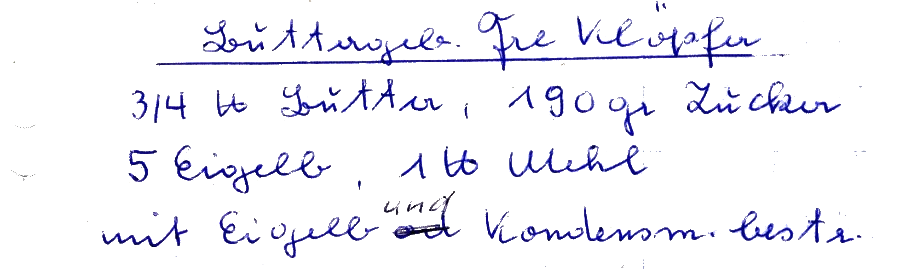 Buttergeb. Fre Klöpfer
3/4 ℔ Butter, 190 gr Zucker
5 Eigelb, 1 ℔ Mehl
mit Eigelb und Kondensm. bestr.